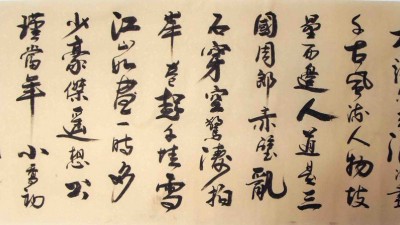 千古風流人物故
壘西邊人道是三
國周郎赤壁亂
石穿空驚濤拍
岸卷起千堆雪
江山如畫一時多
少豪傑遙想公
瑾當年小喬初